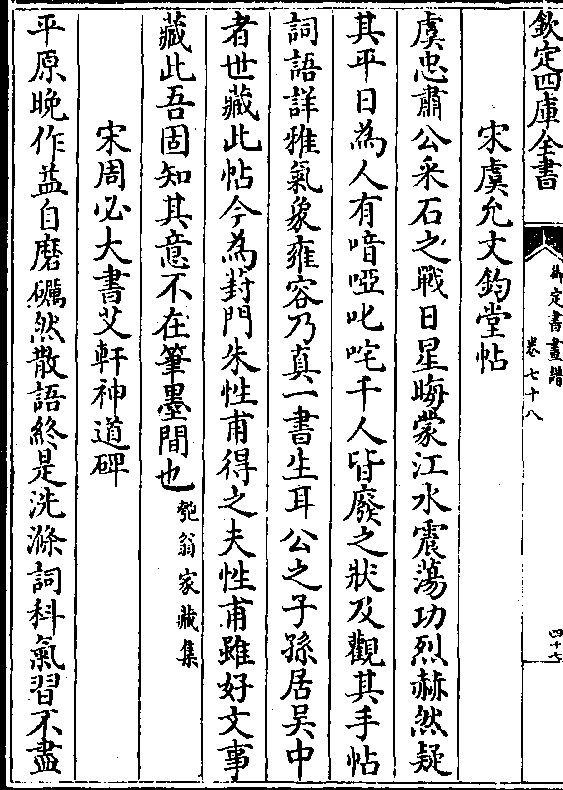 欽定四庫全書
御定書畫譜
卷七十八
四十七
宋虞允文鈞堂帖
虞忠肅公采石之戰日星晦蒙江水震蕩功烈赫然疑
其平日為人有喑啞叱咤千人皆廢之狀及觀其手帖
詞語詳雅氣象雍容乃真一書生耳公之子孫居吳中
者世藏此帖今為葑門朱性甫得之夫性甫雖好文事
藏此吾固知其意不在筆墨間也匏翁家藏集
宋周必大書艾軒神道碑
平原晚作益自磨礪然散語終是洗滌詞科氣習不盡